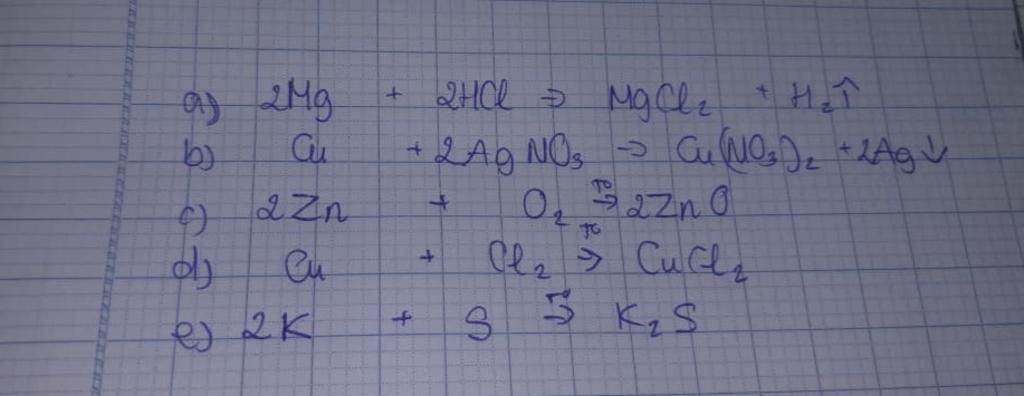 a) 2Mg + 2HCl ⇒ MgCl₂ + H₂↑
b) Cu + 2AgNO₃ → Cu(NO₃)₂ + 2Ag↓
c) 2Zn + O₂ →(t°) 2ZnO
d) Cu + Cl₂ →(t°) CuCl₂
e) 2K + S →(t°) K₂S